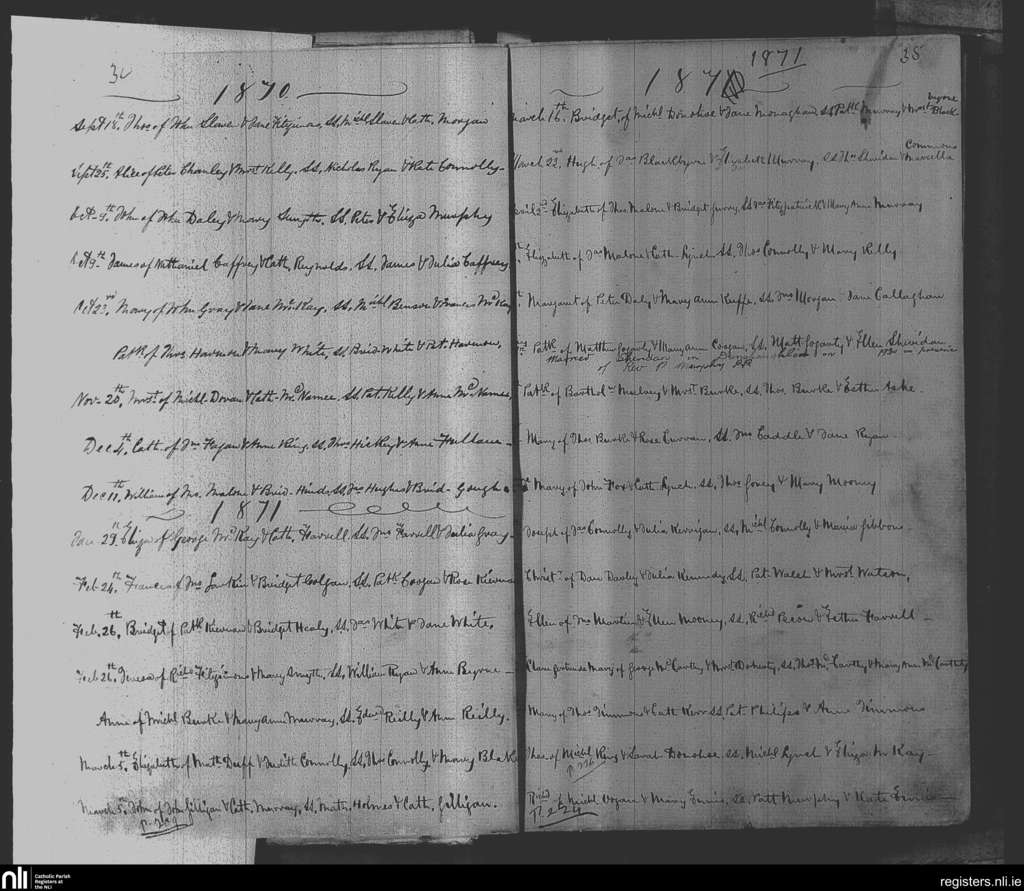 1870
Sept 18th. Thos of John Slaven & Jane Fitzsimons, SS, Michl Slaven & Cath. Morgan
Sept 25th. Alice of Peter Chanley & Mrgt Kelly. SS, Nicholas Ryan & Kate Connolly
Oct 9th. John of John Daly & Mary Smyth. SS. Peter & Eliza Murphy
Oct 9th. James of Nathaniel Caffrey & Cath, Reynolds. SS. James & Julia Caffrey.
Oct 23rd. Mary of John Gray & Jane McKay. SS, Michl Benson & Frances McKay
Patk of Thos Harmon & Mary White, SS Brid. White & Pat. Harmon,
Nov. 20th, Mrgt of Michl Doran & Cath. McNamee. SS. Pat. Kelly & Anne McNamee,
Dec 4th. Cath. of Jno Fegan & Anne King, SS, Thos Hickey & Anne
Dec 11th. William of Jno. Malone & Brid. Hinds, SS, Jno Hughes & Brid. Gough.
1871
Jan 29th. Eliza of George McKay & Cath, Farrell, SS. Jno Farrell & Julia Gray.
Feb. 24th. Frances of Jno Larkin & Bridget Coogan, SS, Patk Coogan & Rose Kiernan
Feb. 26th. Bridget of Patk Kiernan & Bridget Healy, SS. Jas White & Jane White.
Feb 26th. Teresa of Richd Fitzsimons & Mary Smyth. SS, William Ryan & Anne Byrne
Anne of Michl Burke & Mary Anne Murray, SS. Edwd Reilly & Ann Reilly.
March 5th. Elizabeth of Matw Duff & Judith Connolly, SS, Thos Connolly & Mary Blake
March 5th. John of John Gilligan & Cath, Murray, SS. Matw. Holmes & Cath, Gilligan.
38
1871
187
March 16th. Bridget, of Michl Donohoe & Jane Monaghan SS Patk Murray & Mrgt Black-
byrne
March 22nd. Hugh of Jas Blackbyrne & Elizabeth Murray, SS Wm Sheridan & Marcella
Commons
April 2nd. Elizabeth of Thos Malone & Bridget, SS Jno Fitzpatrick & Mary Anne Murray
Elizabeth of Jas Malone & Cath Lynch SS. Thos Connolly & Mary Kelly
Margaret of Peter Daly & Mary Ann Keeffe, SS. Jno Morgan Jane Callaghan
Patk of Matthw Fogarty & Mary Anne Coogan, SS. Matt Fogarty & Ellen Sheridan
Married Sheridan in on 1920 in presence
of Rev P Murphy PP
Patk of Barthol Mulvey & Mrgt Burke, SS. Thos Burke & Esther Aske
Mary of Thos Burke & Rose Curran, SS. Jno Caddle & Jane Ryan
Mary of John Fox & Cath Lynch. SS, Thos Govey & Mary Mooney
Joseph of Jas Connolly & Julia Kerrigan, SS, Michl Connolly & Maria Gibbons
Christr of Dan Darby & Julia Kennedy SS, Pat. Walsh & Mrgt Watson,
Ellen of Jno Martin & Ellen Mooney, SS, Richd & Esther Farrell
Clare Gertrude Mary of George McCarthy & Mrgt Doherty, SS. Thos McCarthy & Mary Ann McCarthy
Mary of Thos Timmons & Cath Kerr SS Pat. Philips & Anne Timmons
Thos of Michl King & Sarah Donohoe, SS, Michl Lynch & Eliza McKay
Richd of Michl Hogan & Mary Ennis, SS. Patt Murphy & Kate Ennis
nli
Catholic Parish
Registers at
the NLI
registers.nli.ie